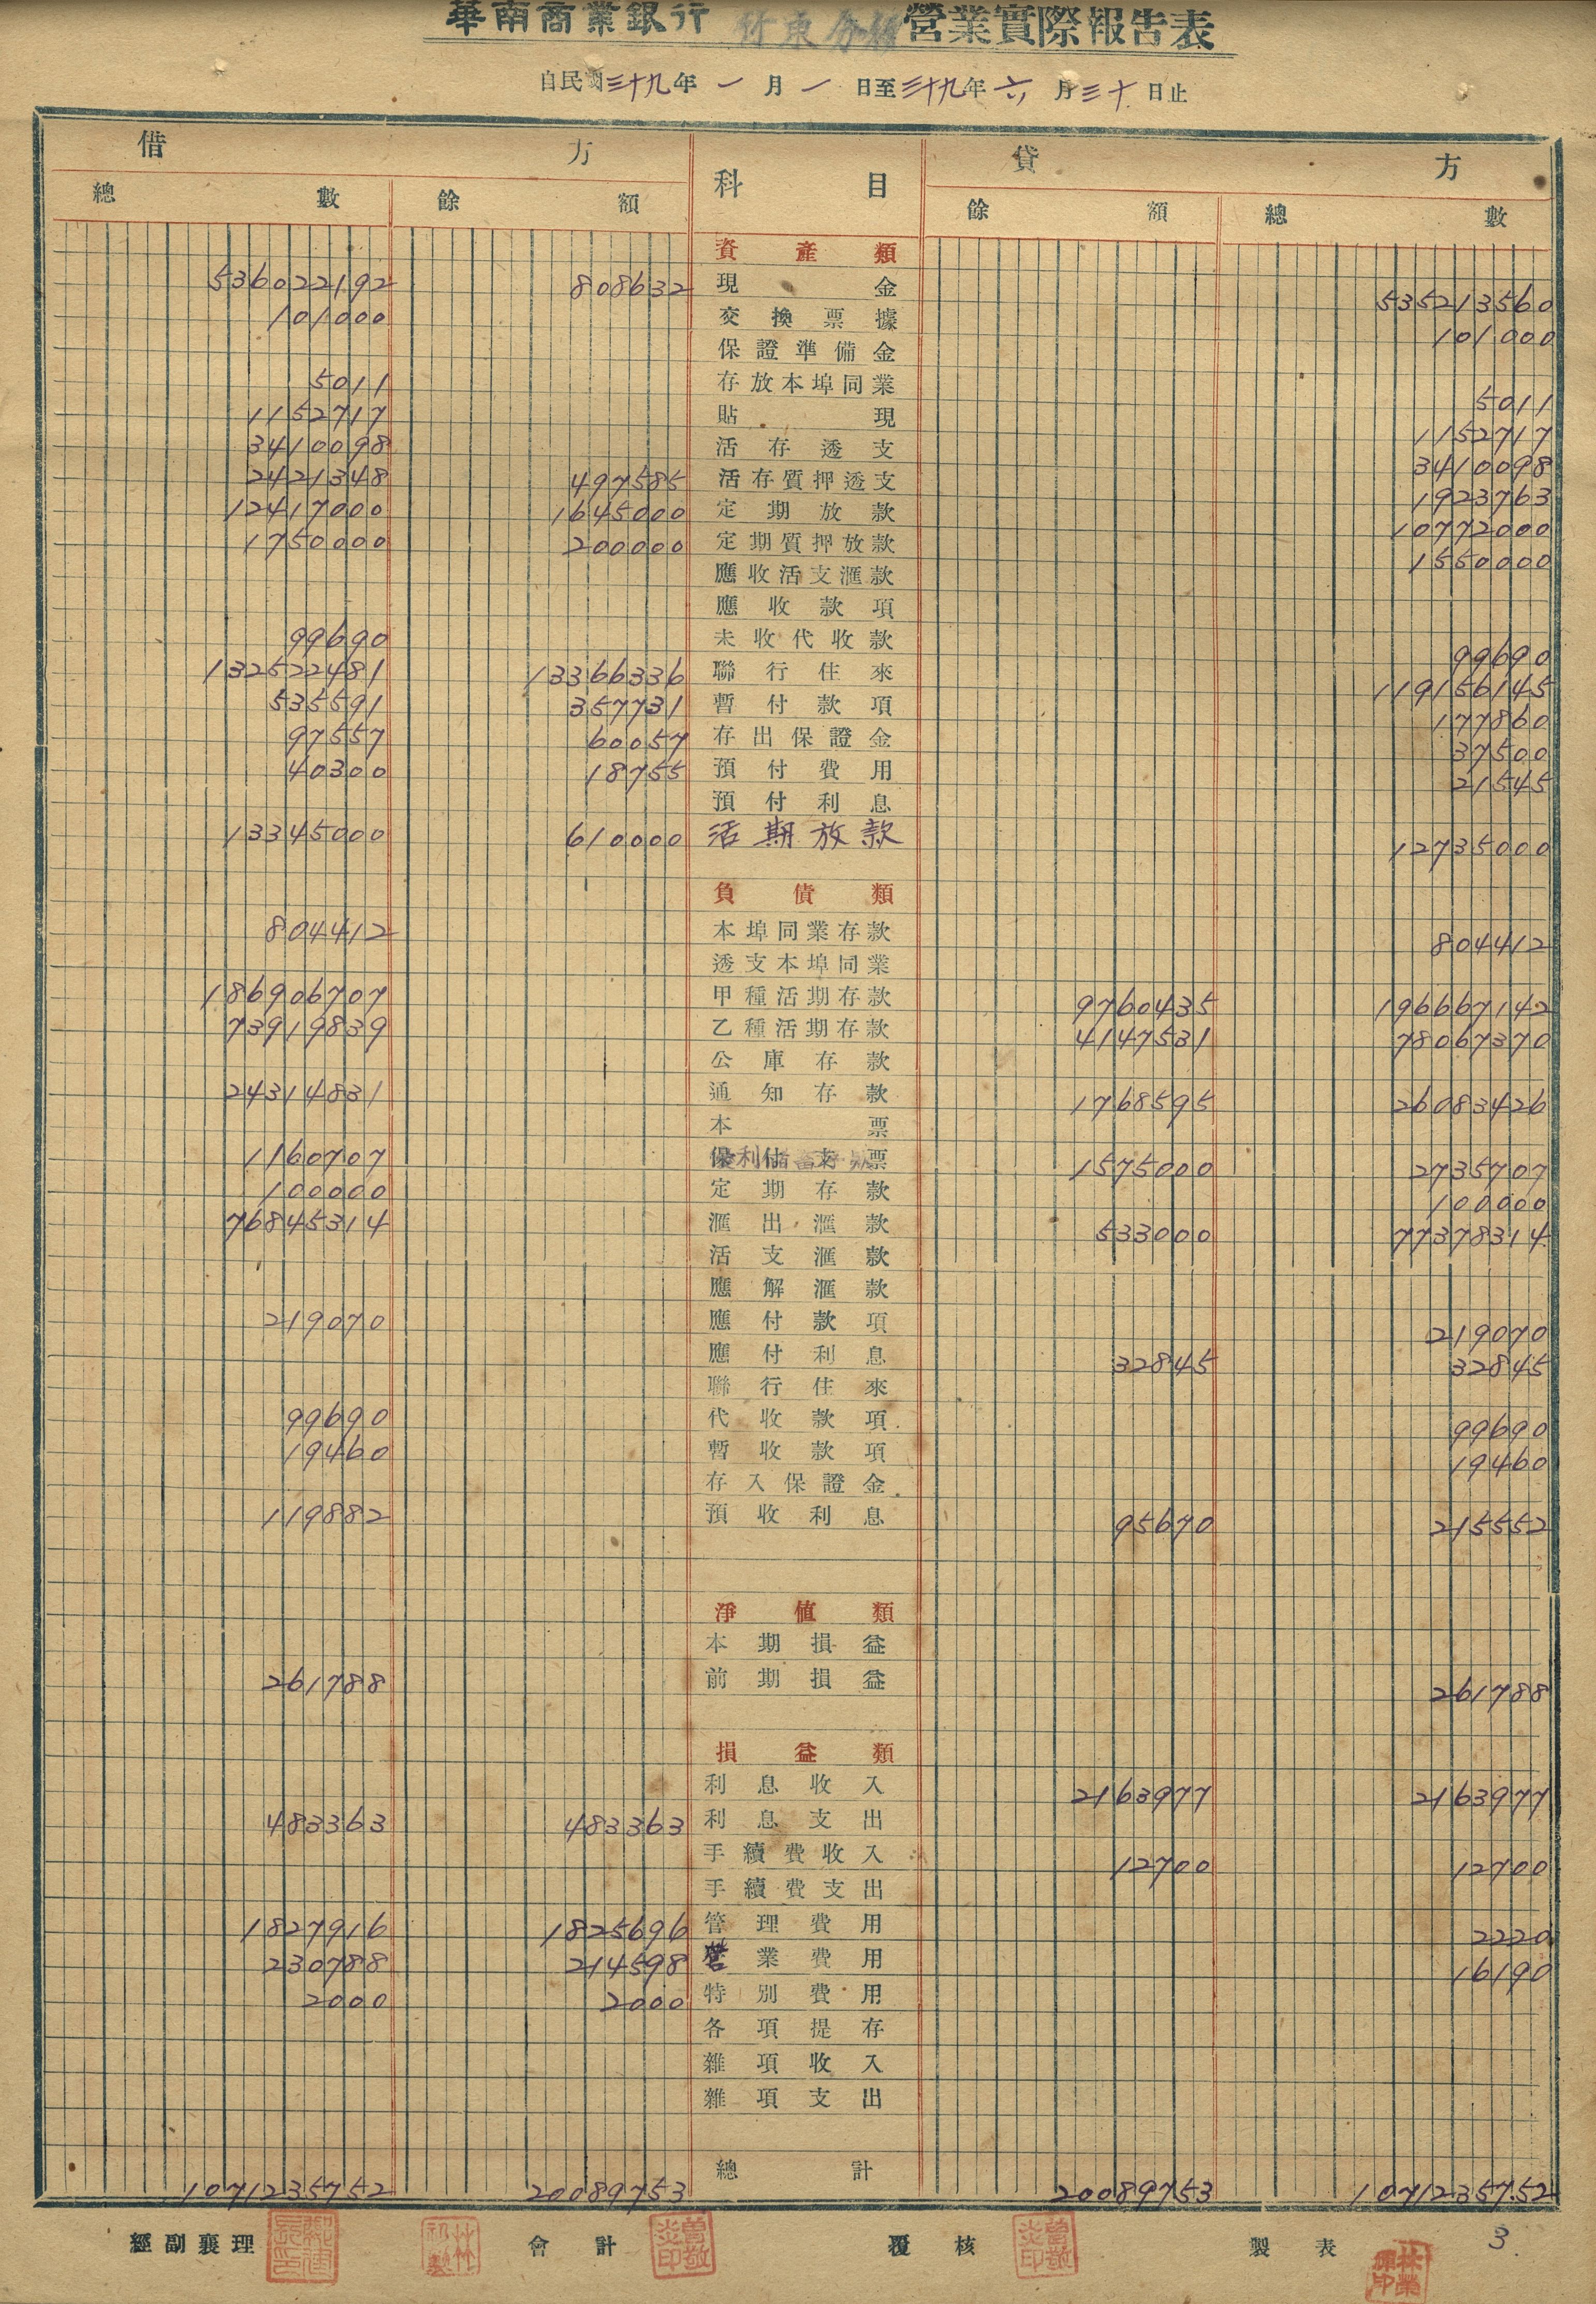 華南商業銀行 竹東分行 營業實際報告表
自民國三十九年一月一日至三十九年六月三十日止
借方 科目 貸方
總數 餘額 餘額 總數
資產類
536022192 808632 現金 535213560
101000 交換票據 101000
保證準備金
5011 存放本埠同業 5011
1152717 貼現 1152717
3410098 活存透支 3410098
2421348 497585 活存質押透支 1923763
12417000 1645000 定期放款 10772000
1750000 200000 定期質押放款 1550000
應收活支滙款
應收款項
99690 未收代收款 99690
132522481 13366336 聯行往來 119156145
535591 357731 暫付款項 177860
97557 60057 存出保證金 37500
40300 18755 預付費用 21545
預付利息
13345000 610000 活期放款 12735000
負債類
804412 本埠同業存款 804412
透支本埠同業
186906707 甲種活期存款 9760435 196667142
73919839 乙種活期存款 4147531 78067370
公庫存款
24314831 通知存款 1768595 26083426
本票
1160707 1575000 2735707
100000 定期存款 100000
76845314 滙出滙款 533000 77378314
活支滙款
應解滙款
219070 應付款項 219070
應付利息 32845 32845
聯行往來
99690 代收款項 99690
19460 暫收款項 19460
存入保證金
119882 預收利息 95670 215552
淨值類
本期損益
261788 前期損益 261788
損益類
利息收入 2163977 2163977
483363 483363 利息支出
手續費收入 12700 12700
手續費支出
1827916 1825696 管理費用 2220
230788 214598 營業費用 16190
2000 2000 特別費用
各項提存
雜項收入
雜項支出
總計
1071235752 20089753 20089753 1071235752
經副襄理 會計 覆核 製表 3